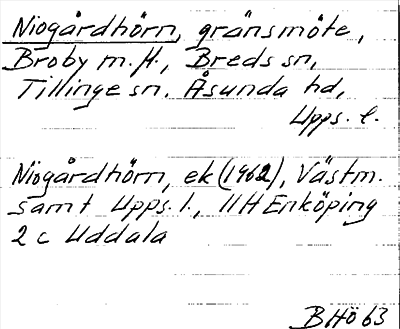 Niogårdhörn, gränsmöte,
Broby m.fl., Breds sn,
Tillinge sn. Åsunda hd,
Upps. l.
Niogårdhörn, ek (1962), Västm.
samt Upps. l., 11H Enköping
2 c Uddala
BHö 63